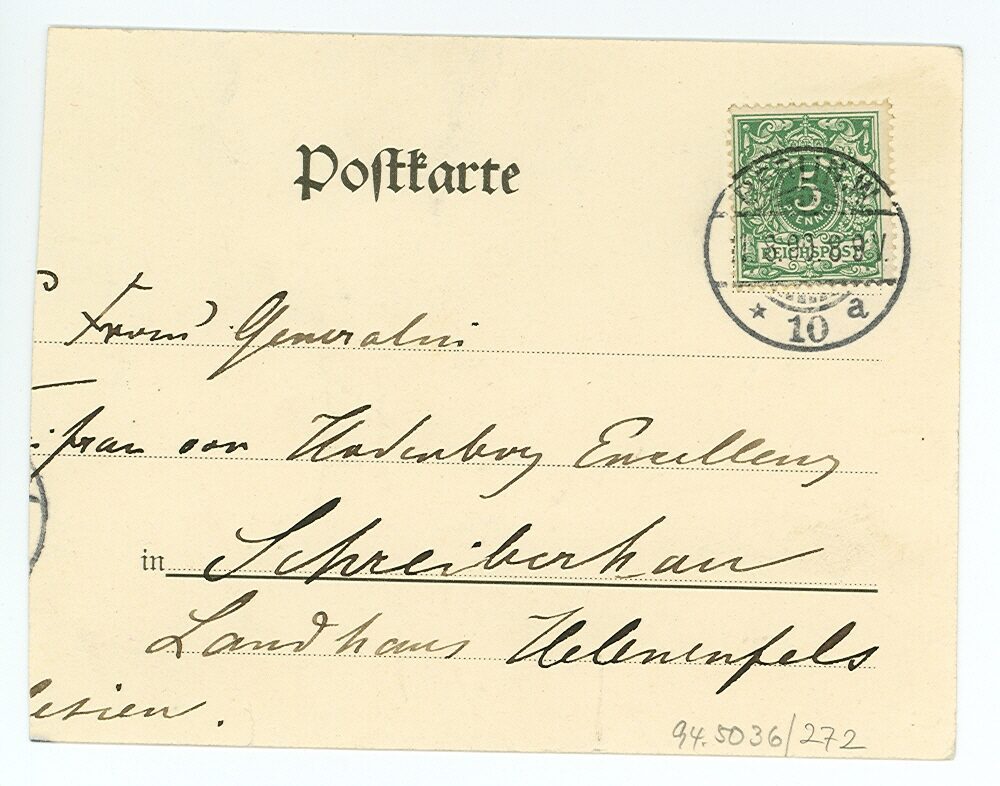 Postkarte
5
PFENNIG
REICHSPOST
* 10 a
Frau Generalin
ifrau von Hodenberg Excellenz
in Schreiberhau
Landhaus Helenenfels
lesien.
94.5036/272